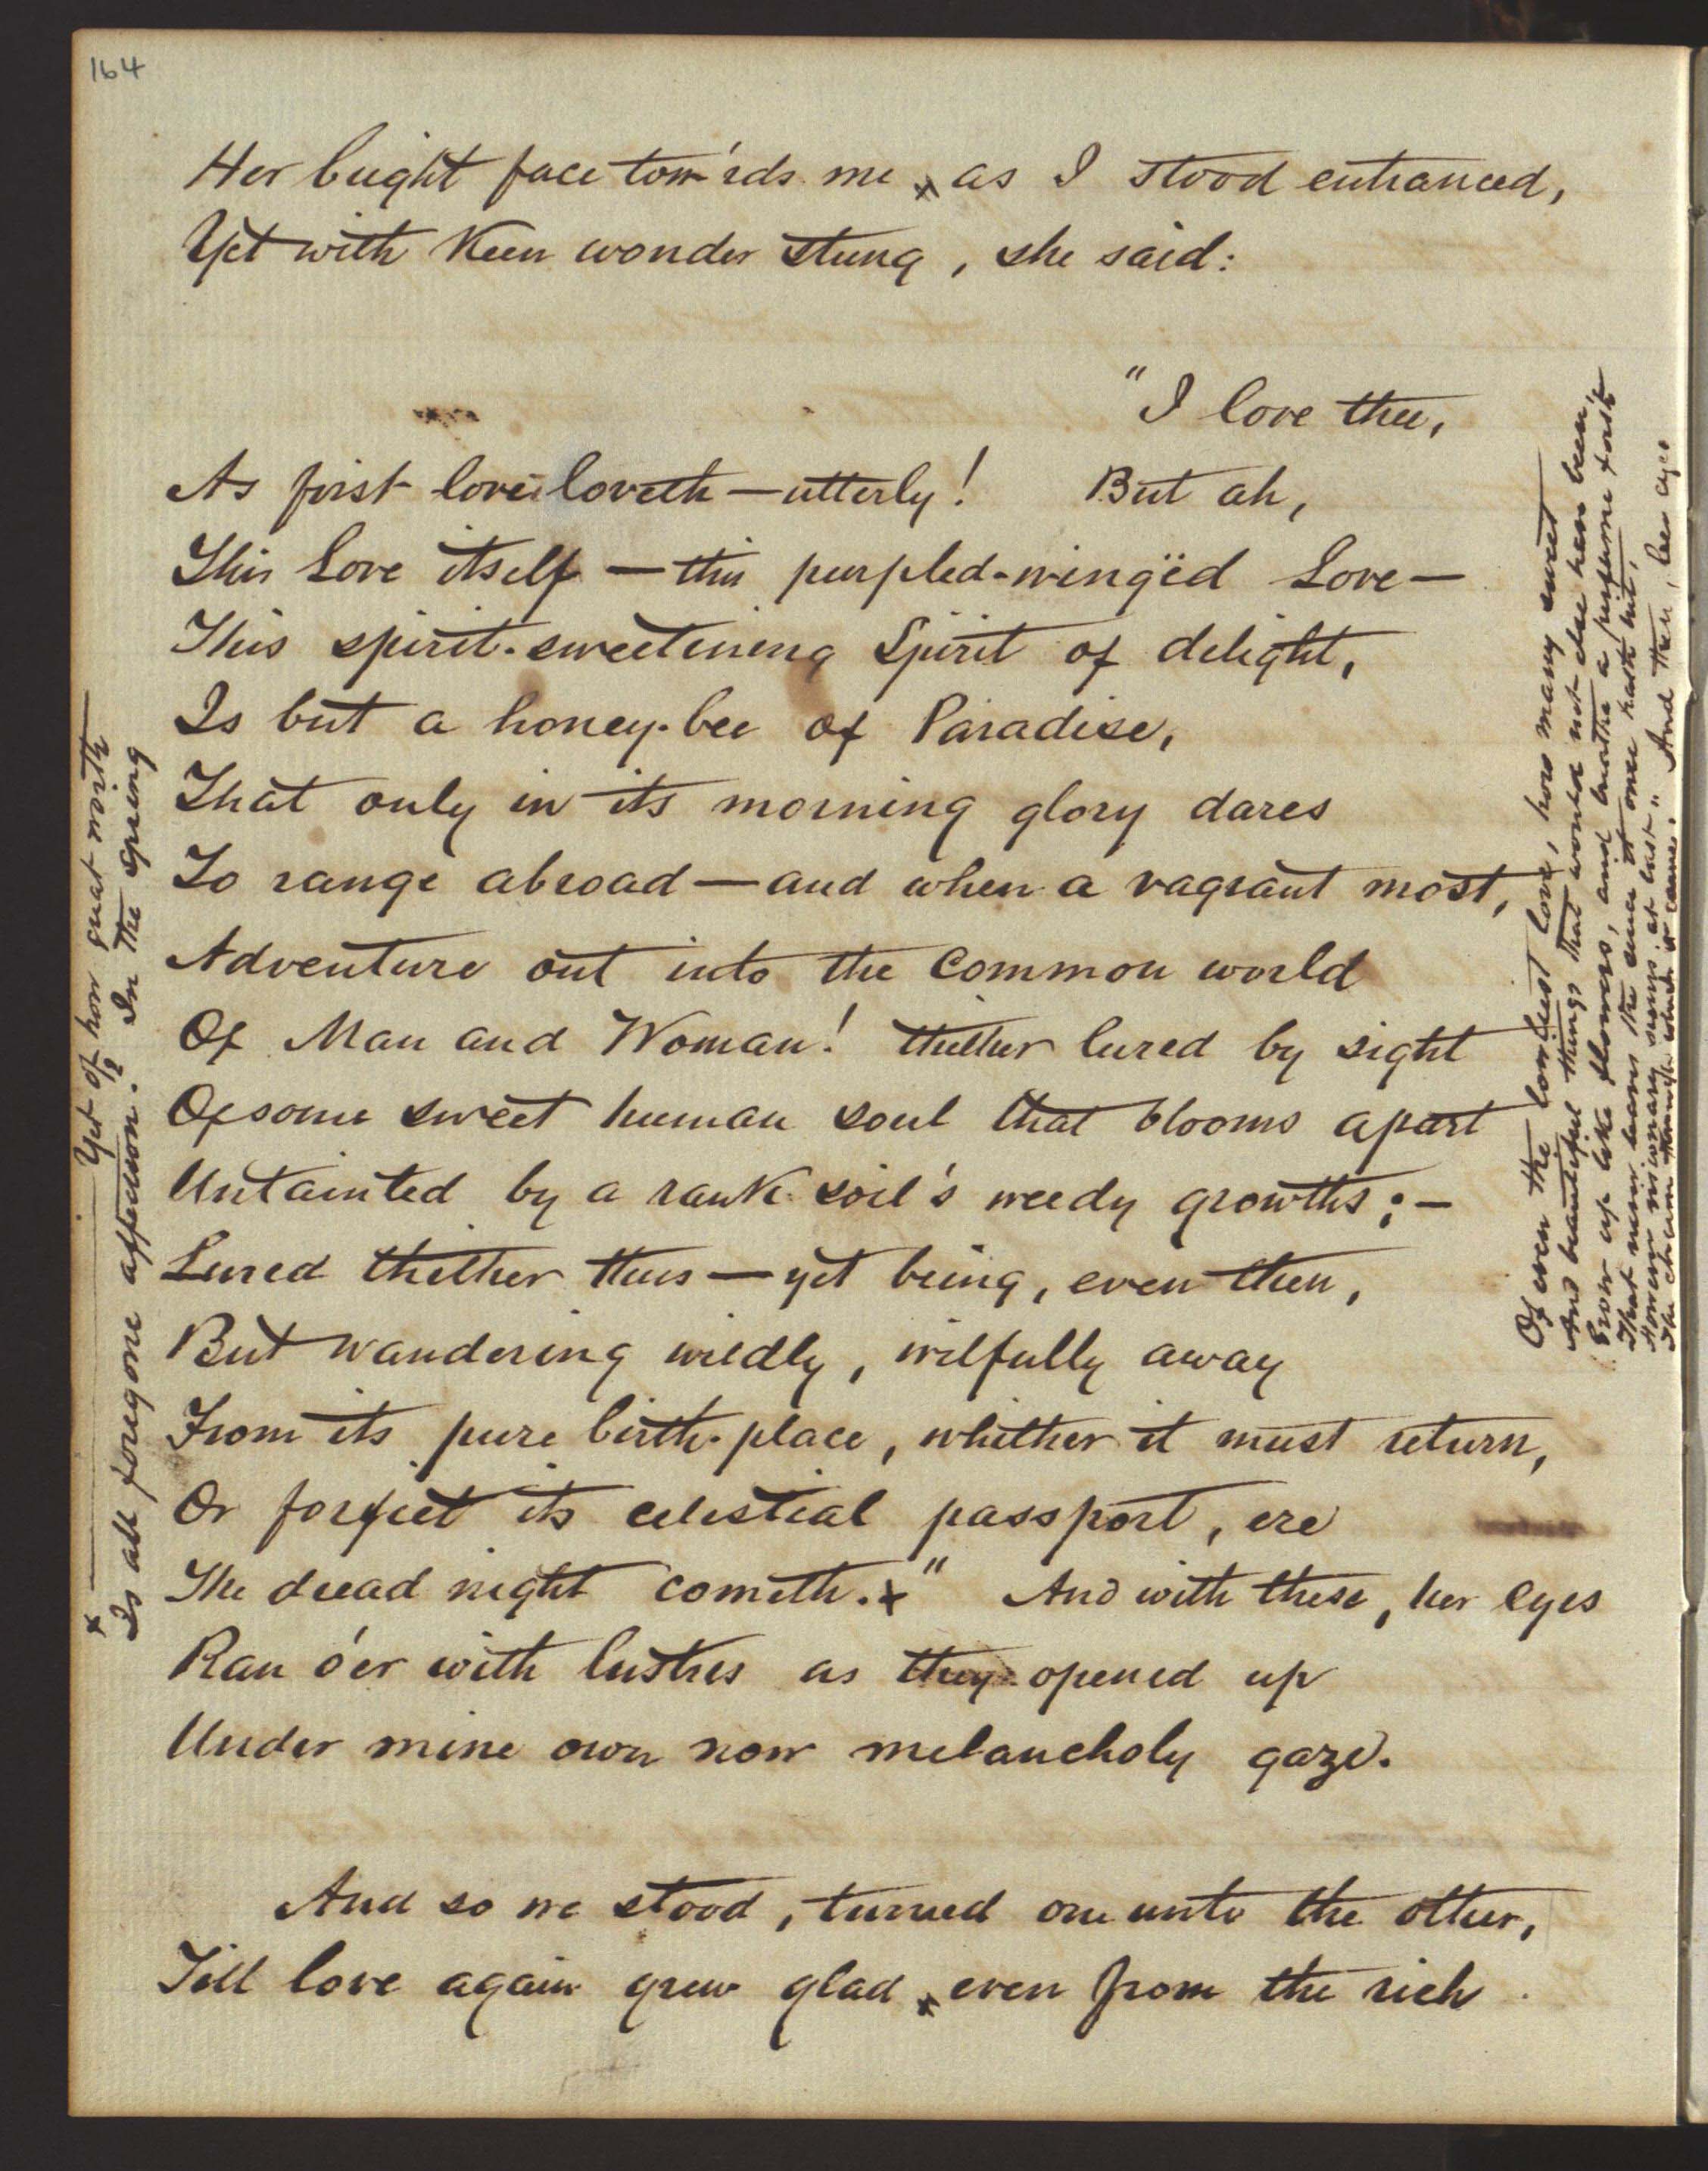 164
Her bright face tow'rds me x as I stood entranced,
Yet with keen wonder stung, she said:
"I love thee,
As first love loveth — utterly! But ah,
This Love itself — this purpled-wingëd Love —
This spirit-sweetening Spirit of delight,
Is but a honey-bee of Paradise,
That only in its morning glory dares
To range abroad — and when a vagrant most,
Adventure out into the common world
Of Man and Woman! thither lured by sight
Of some sweet human soul that blooms apart
Untainted by a rank soil's weedy growths; —
Lured thither thus — yet being, even then,
But wandering wildly, wilfully away
From its pure birth-place, whither it must return,
Or forfeit its celestial passport, ere
The dread night cometh. x" And with these, her eyes
Ran o'er with lustres as they opened up
Under mine own now melancholy gaze.
And so we stood, turned one unto the other,
Till love again grew glad x even from the rich
x — Yet of how great worth
Is all foregone affection? In the Spring
Of even the loneliest love, how many sweet
And beautiful things that would not else have been,
Grow up like flowers, and breathe a perfume forth
That never leaves the sense it once hath hit,
However visionary seems at last." And then, her eyes